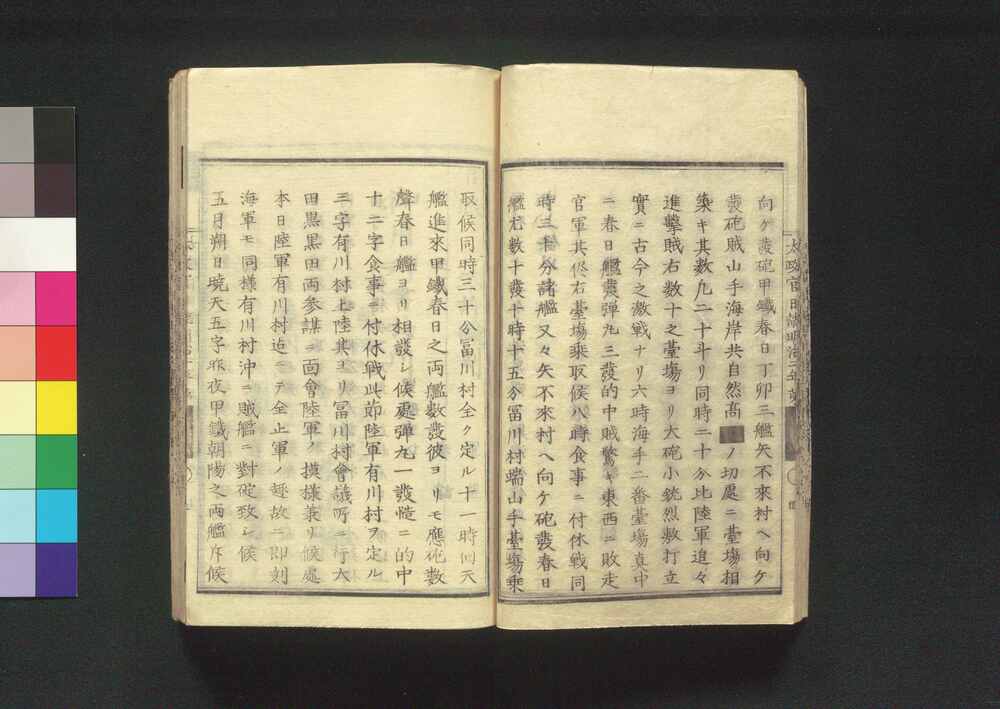 向ケ發砲甲鐵春日丁卯三艦矢不來村ヘ向ケ
發砲賊山手海岸共自然高■ノ切處ニ臺塲相
築キ其數九二十斗リ同時二十分比陸軍追々
進擊賊右數十之臺塲ヨリ大砲小銃烈敷打立
實ニ古今之激戰ナリ六時海手二番臺塲真中
ニ春日艦發彈丸三發的中賊驚キ東西ニ敗走
官軍其侭右臺塲乘取候八時食事ニ付休戰同
時三十分諸艦又々矢不來村ヘ向ケ砲發春日
艦尤數十發十時十五分冨川村端山手臺塲乘
取候同時三十分冨川村全ク定ル十一時回天
艦進來甲鐵春日之両艦數發彼ヨリモ應砲數
聲春日艦ヨリ相發シ候處彈丸一發慥ニ的中
十二字食事ニ付休戰此節陸軍有川村ヲ定ル
三字有川村上陸其ヨリ冨川村會議所ニ行大
田黒黒田両参謀ニ面會陸軍ノ摸様兼リ候處
本日陸軍有川村迠ニテ全止軍ノ趣故ニ即刻
海軍モ同様有川村沖ニ賊艦ニ對碇致シ候
五月朔日曉天五字昨夜甲鐵朝陽之両艦斥候
太政官日誌明治二年